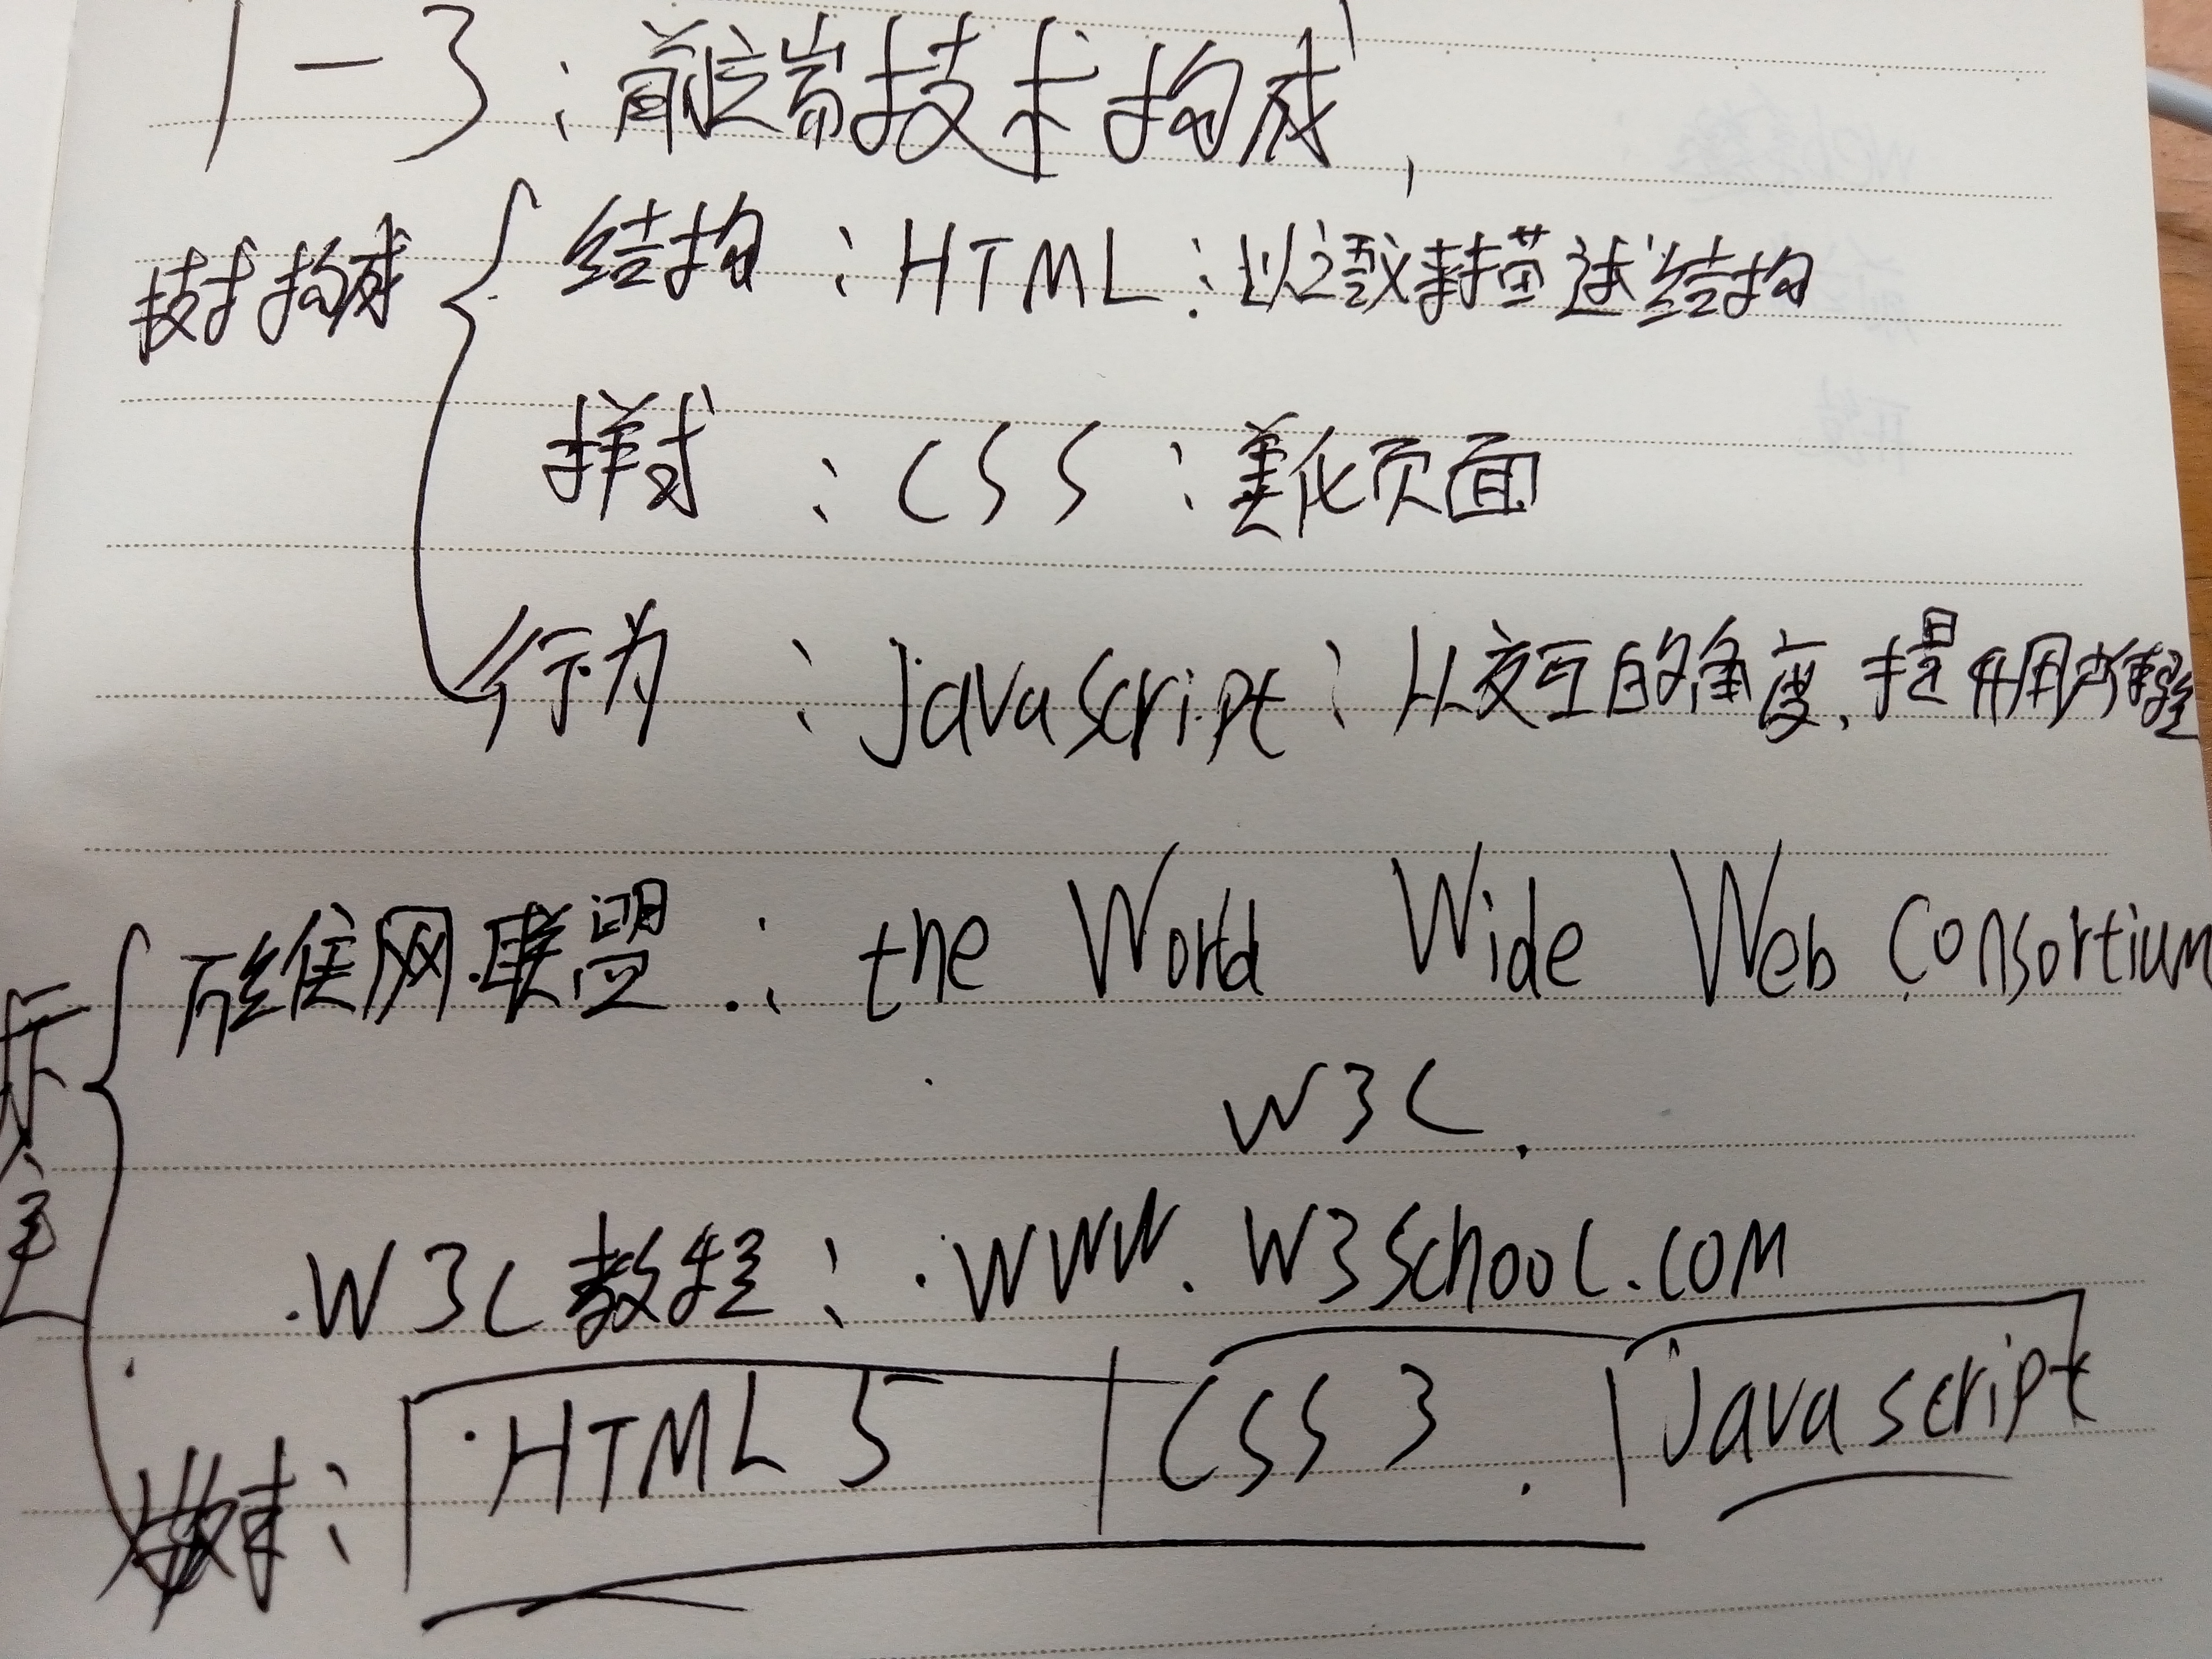 1-3:前端技术构成,
技术构成
结构:HTML:以语义来描述结构
样式:CSS:美化页面
行为:javascript:从交互的角度,提升用户体验
万维网联盟:the World Wide Web Consortium
W3C.
W3C教程:www.w3school.com
HTML5 CSS3 javascript